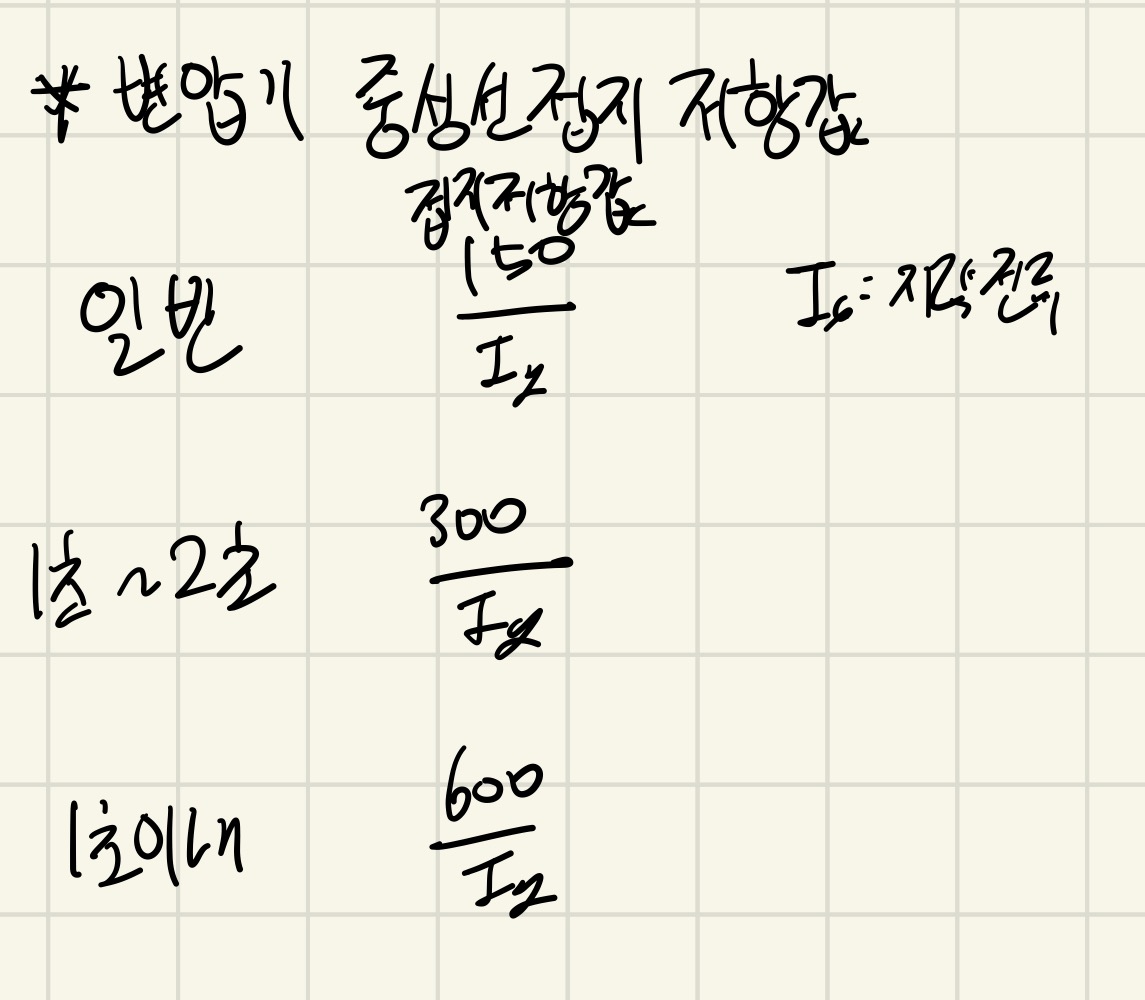 * 변압기 중성선접지 저항값
접지저항값
일반 150/Ig Ig: 지락전류
1초~2초 300/Ig
1초이내 600/Ig